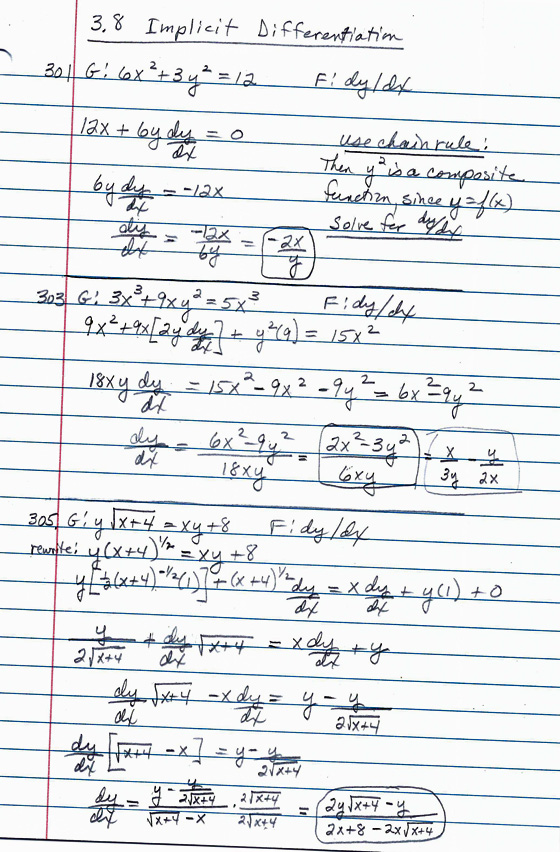 3.8 Implicit Differentiation
301 G: 6x² + 3y² = 12 F: dy/dx
12x + 6y dy/dx = 0
use chain rule:
Then y² is a composite
function, since y = f(x)
Solve for dy/dx
6y dy/dx = -12x
dy/dx = -12x/6y = -2x/y
303 G: 3x³ + 9xy² = 5x³ F: dy/dx
9x² + 9x[2y dy/dx] + y²(9) = 15x²
18xy dy/dx = 15x² - 9x² - 9y² = 6x² - 9y²
dy/dx = 6x² - 9y²/18xy = 2x² - 3y²/6xy = x/3y - y/2x
305. G: y√(x+4) = xy + 8 F: dy/dx
rewrite: y(x+4)^1/2 = xy + 8
y[½(x+4)^-1/2(1)] + (x+4)^1/2 dy/dx = x dy/dx + y(1) + 0
y/2√(x+4) + dy/dx √(x+4) = x dy/dx + y
dy/dx √(x+4) - x dy/dx = y - y/2√(x+4)
dy/dx [√(x+4) - x] = y - y/2√(x+4)
dy/dx = (y - y/2√(x+4))/(√(x+4) - x) · 2√(x+4)/2√(x+4) = (2y√(x+4) - y)/(2x + 8 - 2x√(x+4))